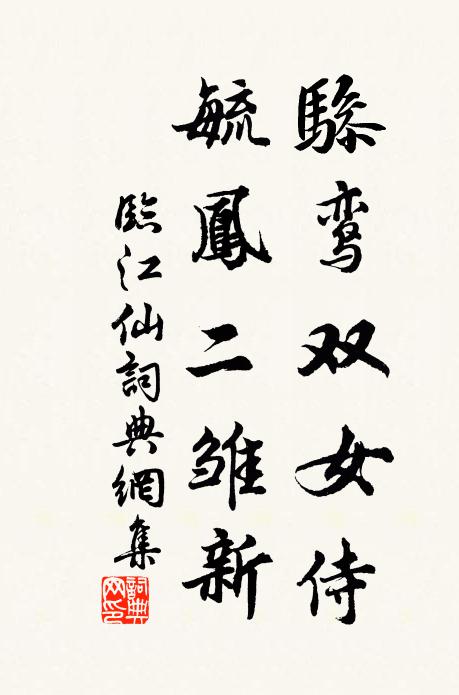 驂鸾双女侍
毓鳳二雏新
臨江仙詞典網集
詞典网印